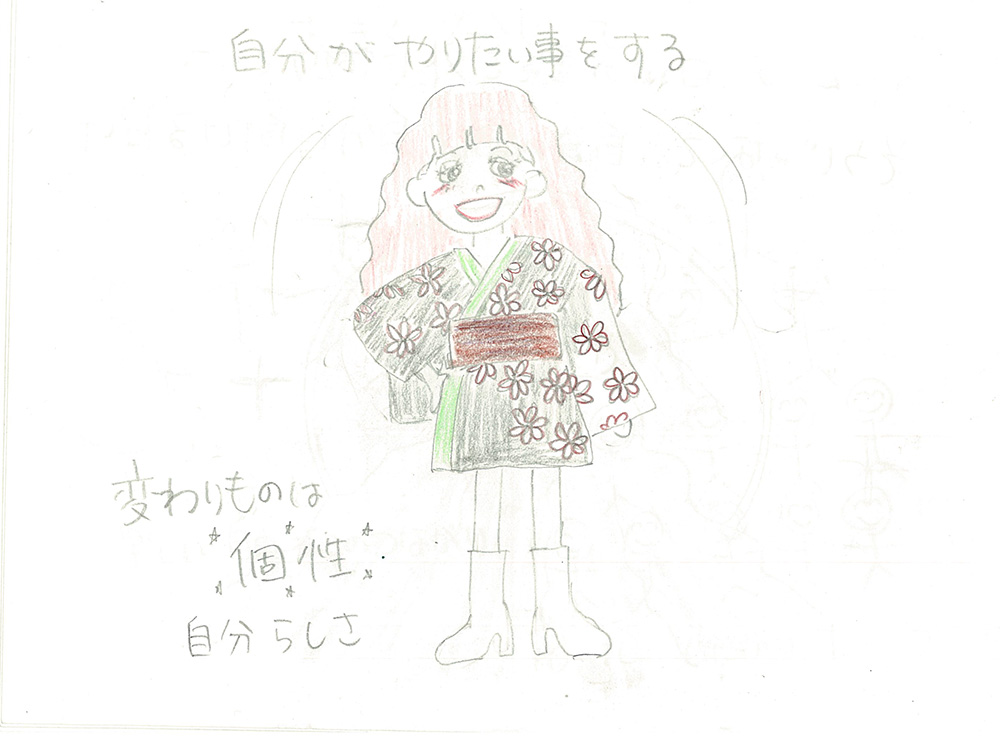 自分がやりたい事をする
変わりものは
個性
自分らしさ